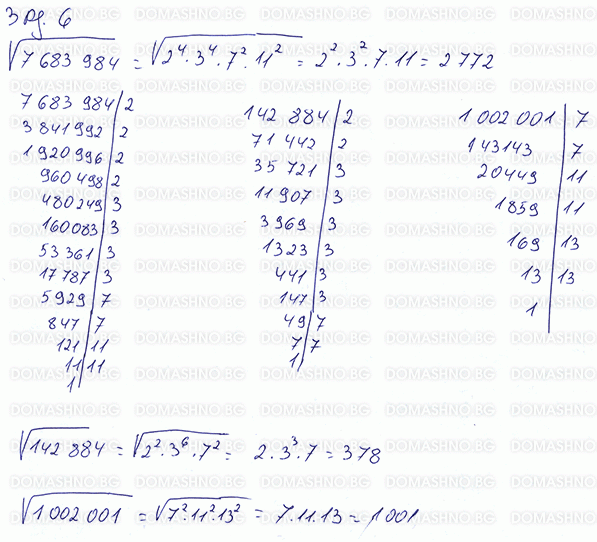 Зад. 6
√7 683 984 = √2⁴.3⁴.7².11² = 2².3².7.11 = 2772
7 683 984 | 2
3 841 992 | 2
1 920 996 | 2
960 498 | 2
480 249 | 3
160 083 | 3
53 361 | 3
17 787 | 3
5929 | 7
847 | 7
121 | 11
11 | 11
1 |
142 884 | 2
71 442 | 2
35 721 | 3
11 907 | 3
3 969 | 3
1323 | 3
441 | 3
147 | 3
49 | 7
7 | 7
1 |
1 002 001 | 7
143143 | 7
20449 | 11
1859 | 11
169 | 13
13 | 13
1 |
√142 884 = √2².3⁶.7² = 2.3³.7 = 378
√1 002 001 = √7².11².13² = 7.11.13 = 1001
DOMASHNO.BG